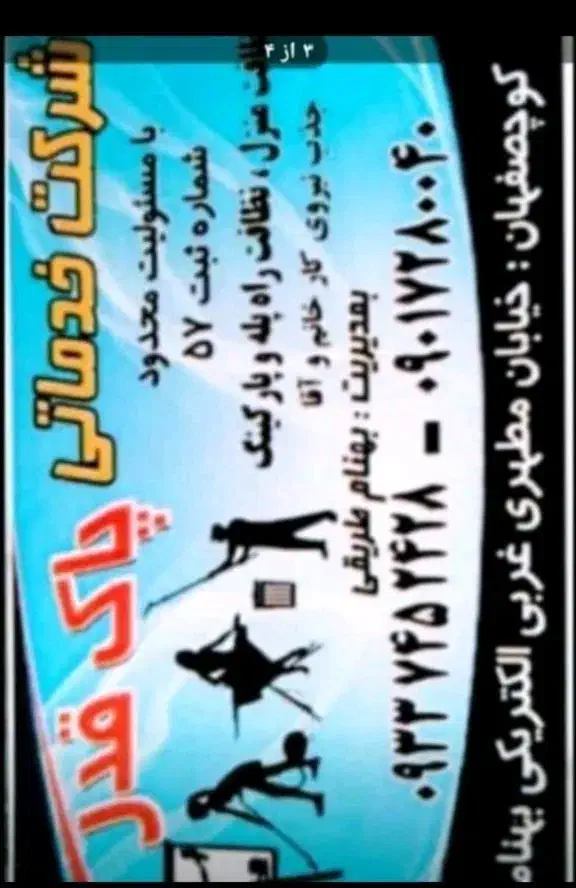 ۳ از ۴
شرکت خدماتی
پاک قدر
با مسئولیت محدود
شماره ثبت ۵۷
نظافت منزل ، نظافت راه پله و پارکینگ
جذب نیروی کار خانم و آقا
بمدیریت : بهنام طریقی
۰۹۳۳۷۴۵۲۴۲۸ - ۰۹۰۱۷۲۸۰۰۴۰
کوچصفهان : خیابان مطهری غربی الکتریکی بهنام